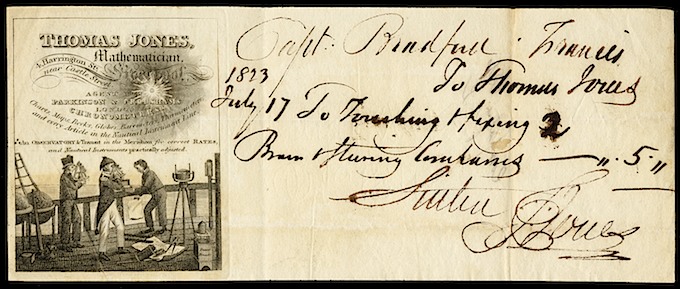 THOMAS JONES,
Mathematician,
4, Harrington St.
near Castle Street
Liverpool
AGENT
PARKINSON &
LONDON
CHRONOMETERS
Charts, Maps, Books, Globes, Barometers, Thermometers
and every Article in the Nautical Instrument Line.
OBSERVATORY & Transit in the Meridian for correct RATES,
and Nautical Instruments practically adjusted.
Capt. Bradford. Francis
1823
To Thomas Jones
July 17 To Touching & fixing 2
Steering Compasses — " 5 "
T Jones